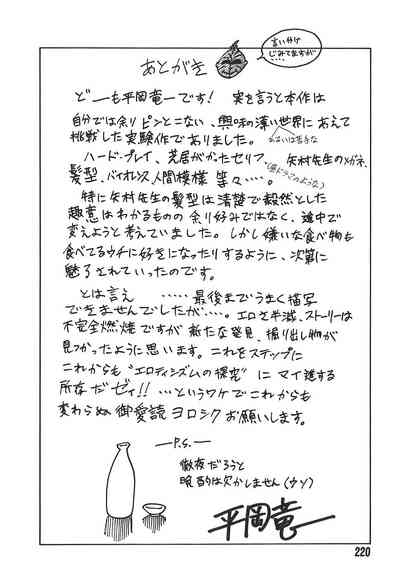 あとがき
言い分け
じみてますが
どーも平岡竜一です! 実を言うと本作は
自分では余りピンとこない、興味の薄い世界にあえて
挑戦した実験作でありました。
あるいは苦手な
ハード・プレイ、芝居がかったセリフ、矢村先生のメガネ、
(昼ドラマのような)
髪型、バイオレンス、人間模様 等々‥‥。
特に矢村先生の髪型は清楚で毅然とした
趣意はわかるものの 余り好みではなく、途中で
変えようと考えていました。しかし嫌いな食べ物も
食べてるウチに好きになったりするように、次第に
魅了されていったのです。
とは言え ‥‥‥最後までうまく描写
できませんでしたが‥‥。エロさ半減、ストーリーは
不完全燃焼ですが 新たな発見、掘り出し物が
見つかったように思います。これをステップに
これからも"エロティシズムの探究"に マイ進する
所存だゼィ!! ‥‥というワケでこれからも
変わらぬ御愛読ヨロシクお願いします。
—P.S.—
徹夜だろうと
晩酌は欠かしません(ウソ)
平岡竜一
220